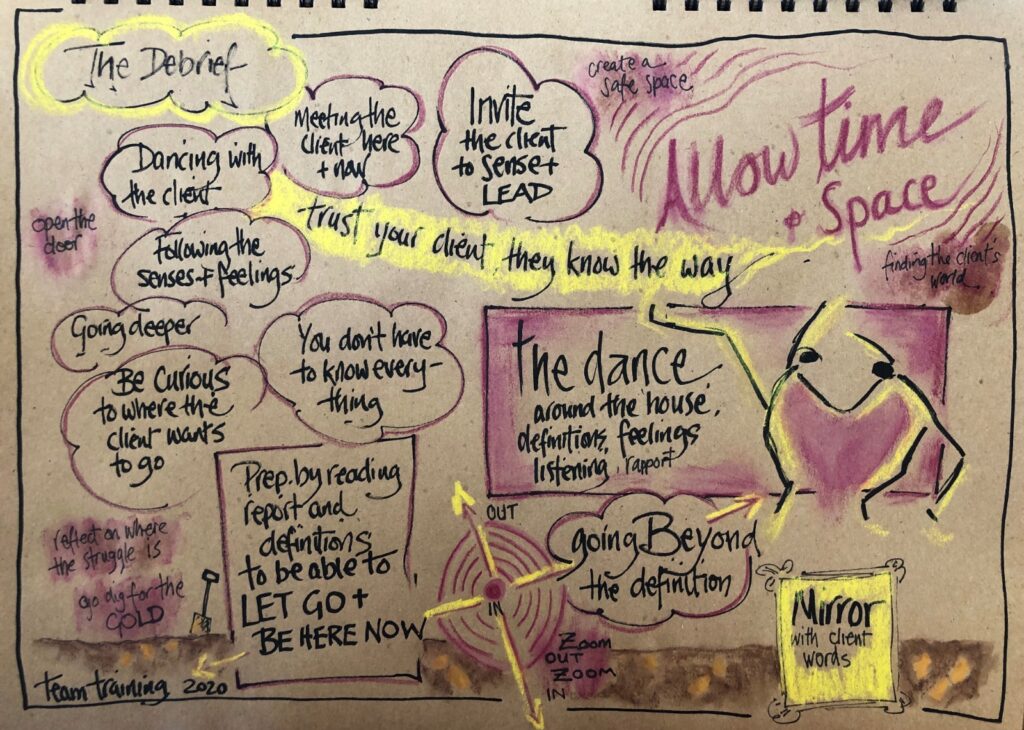 The Debrief
Meeting the
client here
+ now
Invite
the client
to sense +
LEAD
create a
safe space
Allow time
+ Space
Dancing with
the client
trust your client, they know the way
open the
door
Following the
senses + feelings
finding the client's
world
Going deeper
You don't have
to know every-
thing
Be Curious
to where the
client wants
to go
the dance
around the house,
definitions, feelings
listening, rapport
Prep. by reading
report and
definitions
to be able to
LET GO +
BE HERE NOW
OUT
IN
going Beyond
the definition
reflect on where
the struggle is
go dig for the
GOLD
Mirror
with client
words
Zoom
OUT
Zoom
IN
Team training 2020